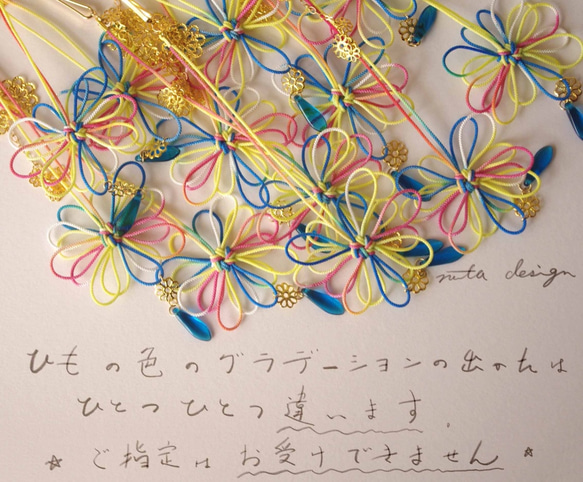 nuta design
ひもの色のグラデーションの出かたは
ひとつひとつ違います.
☆ ご指定はお受けできません ☆